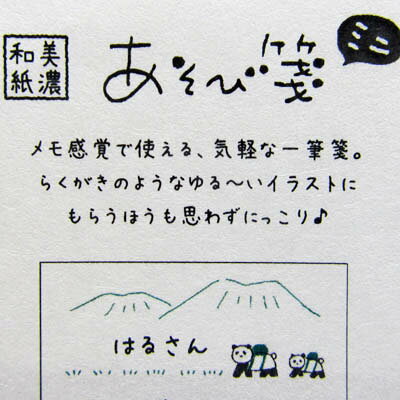 美濃
和紙
あそび箋
ミニ
メモ感覚で使える、気軽な一筆箋。
らくがきのようなゆる〜いイラストに
もらうほうも思わずにっこり♪
はるさん